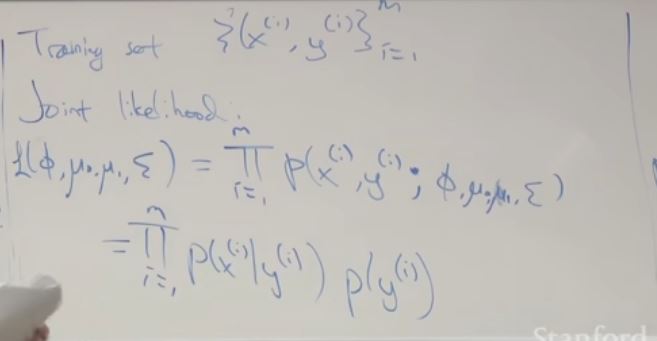 Training set {(x⁽ⁱ⁾, y⁽ⁱ⁾)}ᵐᵢ₌₁
Joint likelihood:
ℒ(φ, μ₀, μ₁, Σ) = ∏ᵐᵢ₌₁ p(x⁽ⁱ⁾, y⁽ⁱ⁾; φ, μ₀, μ₁, Σ)
= ∏ᵐᵢ₌₁ p(x⁽ⁱ⁾|y⁽ⁱ⁾) p(y⁽ⁱ⁾)
Stanford